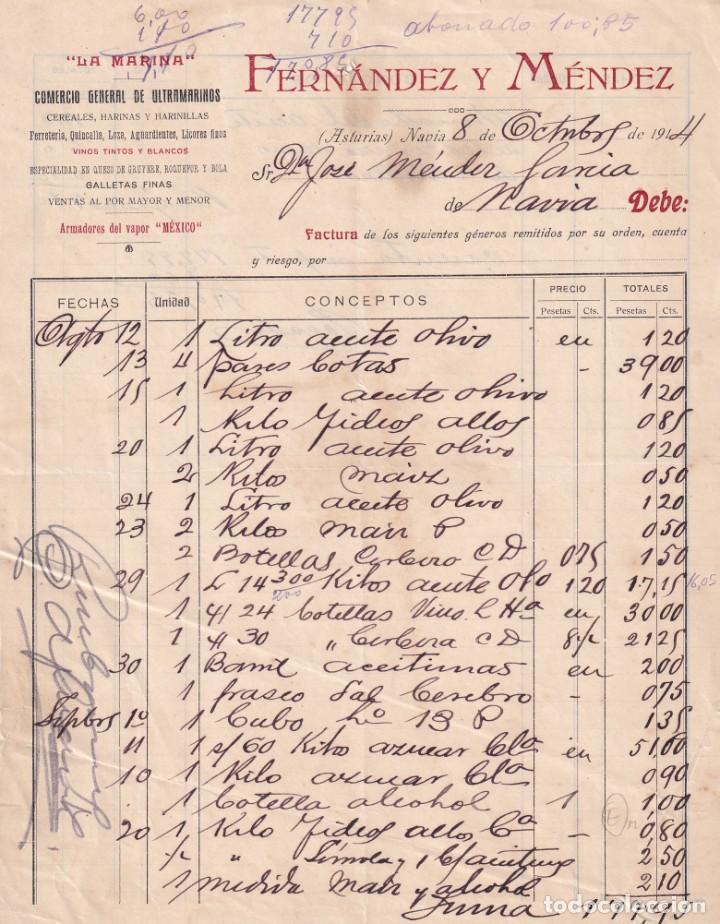 6,00
1,10
7,10
17795
710
17085
abonado 100,85
"LA MARINA"
COMERCIO GENERAL DE ULTRAMARINOS
CEREALES, HARINAS Y HARINILLAS
Ferretería, Quincalla, Loza, Aguardientes, Licores finos
VINOS TINTOS Y BLANCOS
ESPECIALIDAD EN QUESO DE GRUYERE, ROQUEFOR Y BOLA
GALLETAS FINAS
VENTAS AL POR MAYOR Y MENOR
Armadores del vapor "MÉXICO"
FERNÁNDEZ Y MÉNDEZ
(Asturias) Navia 8 de Octubre de 1914
Sr. Dn José Méndez García
de Navia Debe:
Factura de los siguientes géneros remitidos por su orden, cuenta
y riesgo, por
FECHAS Unidad CONCEPTOS PRECIO TOTALES
Pesetas Cts. Pesetas Cts.
Agto 12 1 Litro aceite olivo en 1 20
13 4 pares botas - 39 00
15 1 Litro aceite olivo 1 20
1 Kilo fideos allos 0 85
20 1 Litro aceite olivo 1 20
2 Kilos maiz 0 50
24 1 Litro aceite olivo 1 20
23 2 Kilos maiz P 0 50
2 Botellas Cerbeza C D 0 75 1 50
29 1 L 14 300 Kilos aceite Olo 1 20 17,15 16,05
200
1 4/ 24 botellas Vino en 30 00
1 4/ 30 " Cerbeza C D 21 25
30 1 Barril aceitunas en 2 00
1 frasco Sal Cerebro - 0 75
Sepbre 1º 1 Cubo nº 13 P 1 35
11 1 s/ 60 Kilos azucar Cla en 51,00
10 1 Kilo azucar Cla 0 90
1 botella alcohol 1 1,00
20 1 Kilo fideos allos 0,80
2 50
1 medida maiz y alcohol 2 10
Suma 177,95
todocoleccion.net